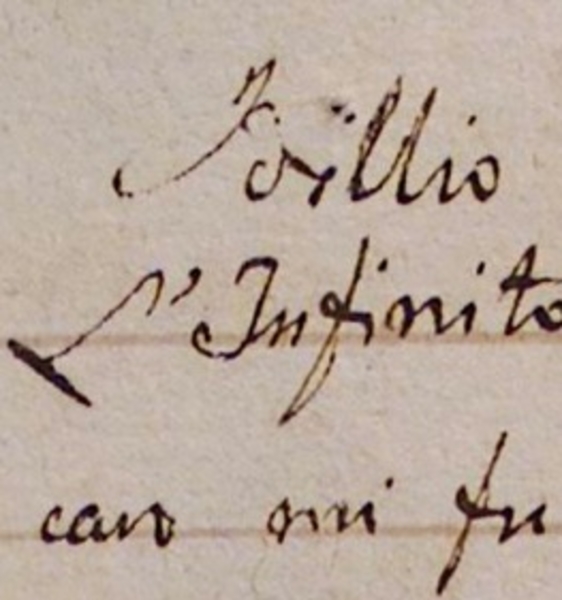 Idillio
L'Infinito
caro mi fu